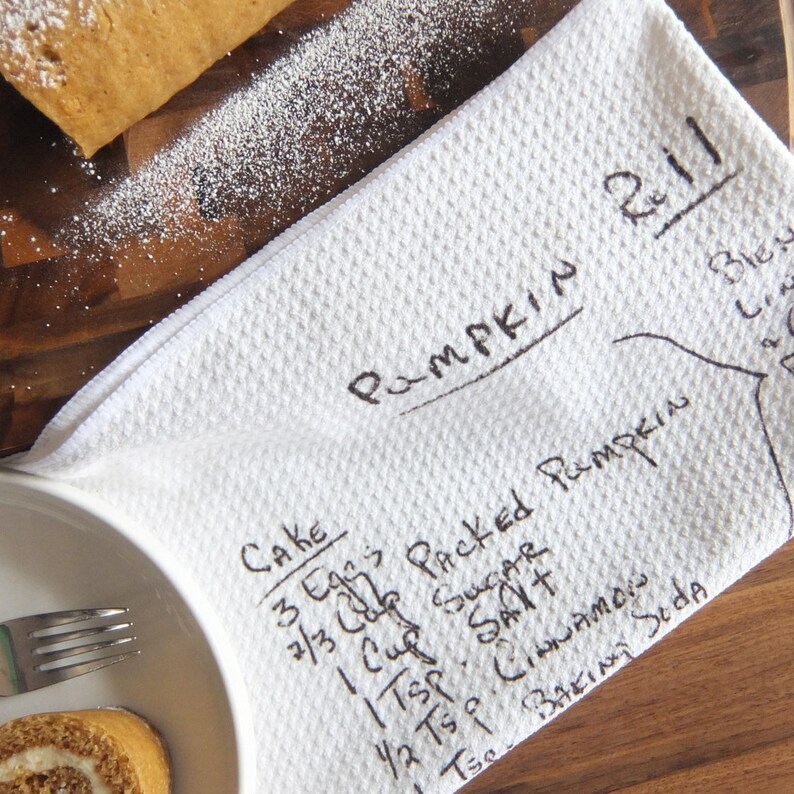 Pumpkin Roll
Cake
3 Eggs
2/3 Cup Packed Pumpkin
1 Cup Sugar
1 Tsp. Salt
1/2 Tsp. Cinnamon
1 Tsp. Baking Soda